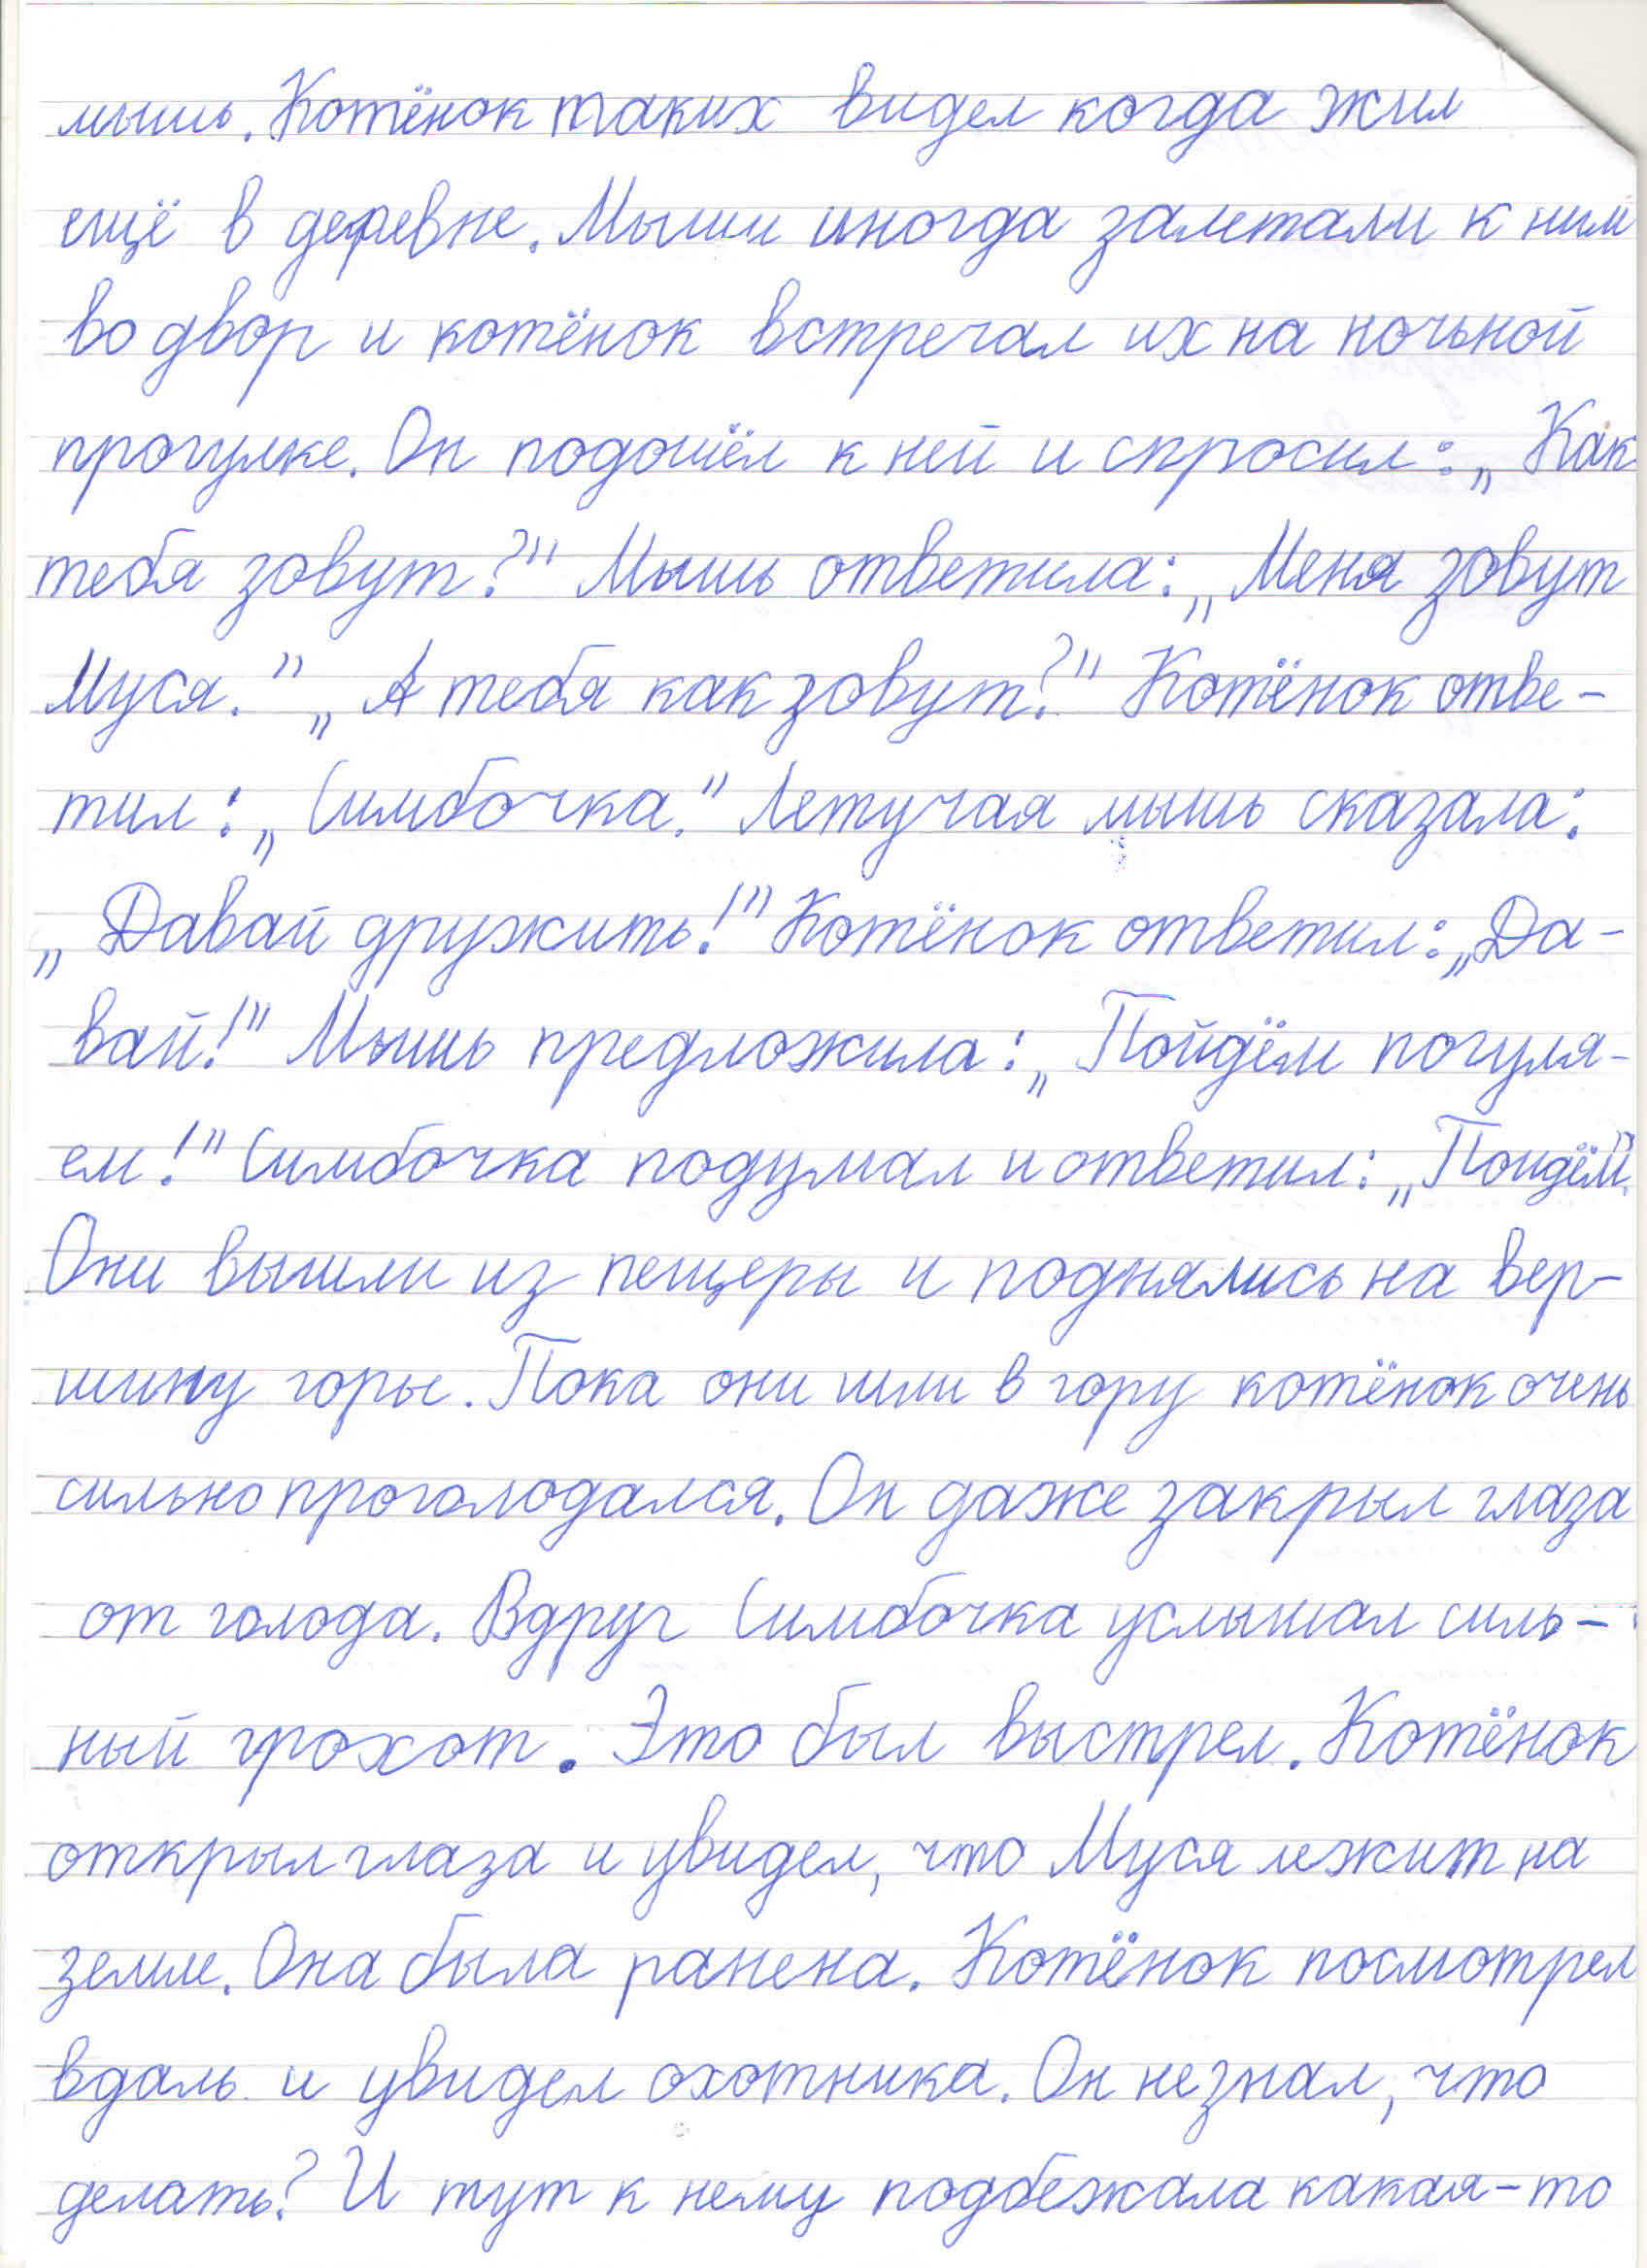 мышь. Котёнок таких видел когда жил
ещё в деревне. Мыши иногда залетали к ним
во двор и котёнок встречал их на ночьной
прогулке. Он подошёл к ней и спросил: „Как
тебя зовут?" Мышь ответила: „Меня зовут
Муся." „А тебя как зовут?" Котёнок отве-
тил: „Симбочка." Летучая мышь сказала:
„Давай дружить!" Котёнок ответил: „Да-
вай!" Мышь предложила: „Пойдём погуля-
ем!" Симбочка подумал и ответил: „Пойдём".
Они вышли из пещеры и поднялись на вер-
шину горы. Пока они шли в гору котёнок очень
сильно проголодался. Он даже закрыл глаза
от голода. Вдруг Симбочка услышал силь-
ный грохот. Это был выстрел. Котёнок
открыл глаза и увидел, что Муся лежит на
земле. Она была ранена. Котёнок посмотрел
вдаль и увидел охотника. Он не знал, что
делать? И тут к нему подбежала какая-то